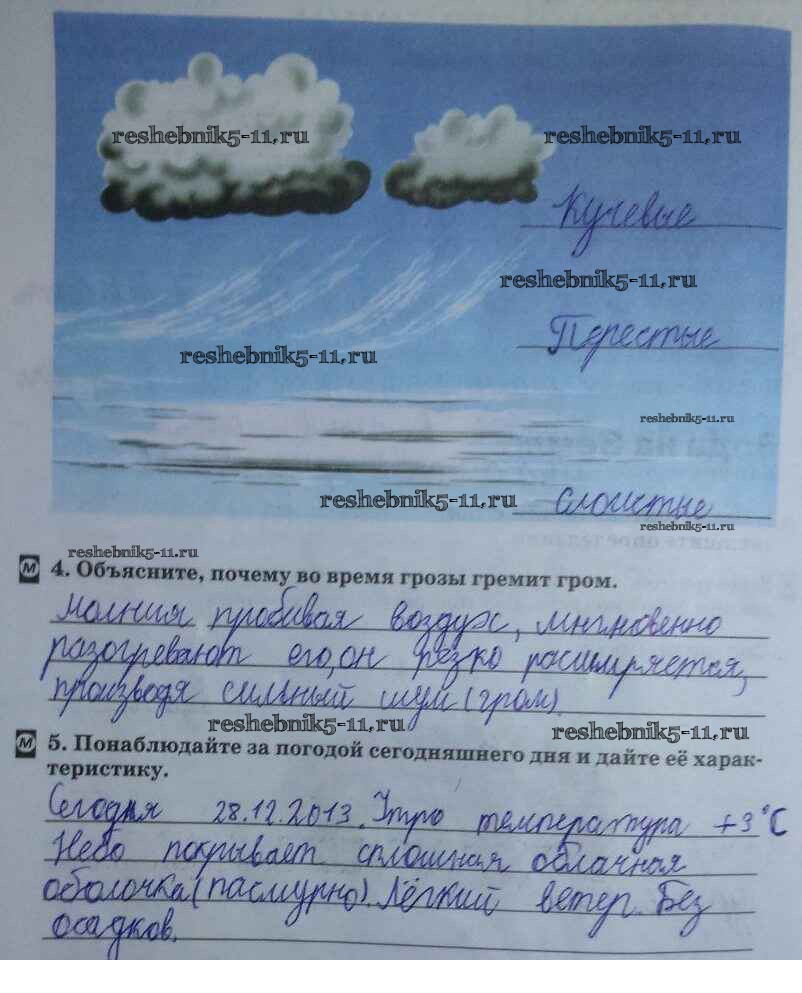 reshebnik5-11.ru reshebnik5-11.ru
Кучевые
reshebnik5-11.ru
Перестые
reshebnik5-11.ru
reshebnik5-11.ru
reshebnik5-11.ru Слоистые
reshebnik5-11.ru
reshebnik5-11.ru
М 4. Объясните, почему во время грозы гремит гром.
Молния пробивая воздух, мнгновенно
разогревают его, он резко расширяется,
производя сильный шум (гром).
reshebnik5-11.ru reshebnik5-11.ru
М 5. Понаблюдайте за погодой сегодняшнего дня и дайте её харак-
теристику.
Сегодня 28.12.2013. Утро температура +3°C
Небо покрывает сплошная облачная
оболочка (пасмурно). Лёгкий ветер. Без
осадков.